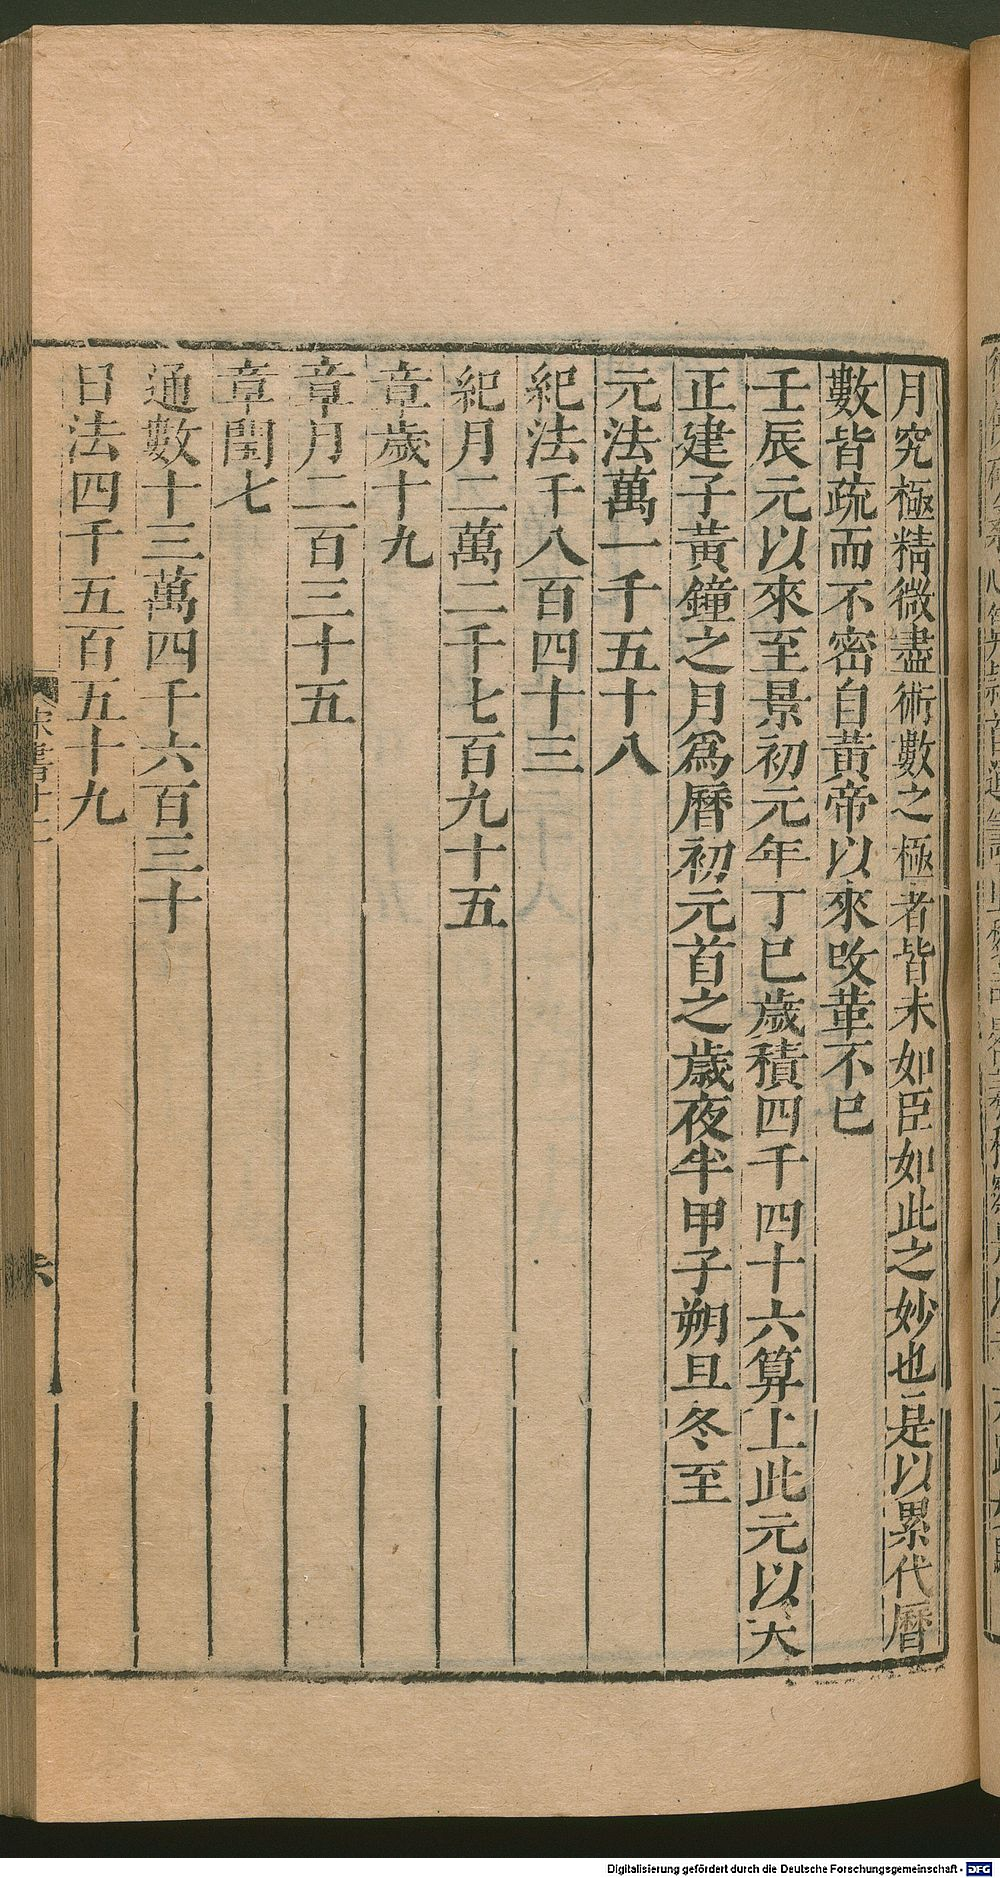 月究極精微盡術數之極者皆未如臣如此之妙也是以累代曆
數皆疏而不密自黃帝以來改革不已
壬辰元以來至景初元年丁巳歲積四千四十六算上此元以天
正建子黃鐘之月爲曆初元首之歲夜半甲子朔旦冬至
元法萬一千五十八
紀法千八百四十三
紀月二萬二千七百九十五
章歲十九
章月二百三十五
章閏七
通數十三萬四千六百三十
日法四千五百五十九
宋書十二
六
Digitalisierung gefördert durch die Deutsche Forschungsgemeinschaft - DFG